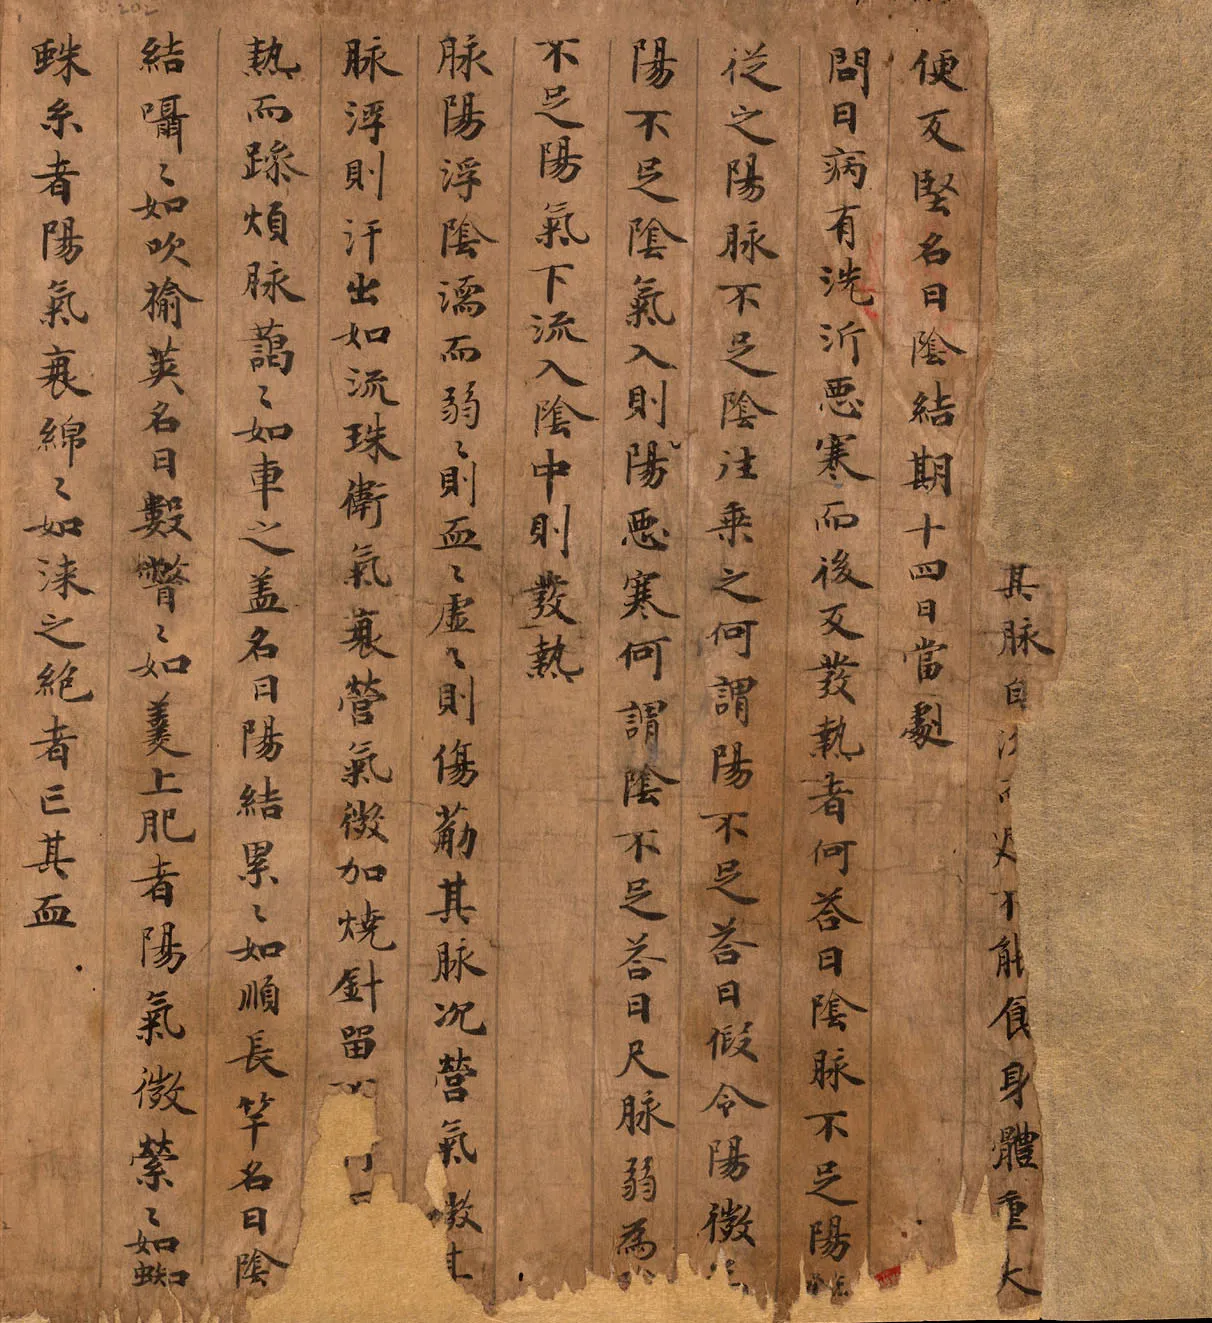 其脉自沉而遲不能食身體重大
便反堅名曰陰結期十四日當劇
問曰病有洗沂惡寒而後反發熱者何荅曰陰脉不足陽
從之陽脉不足陰注乗之何謂陽不足荅曰假令陽微
陽不足陰氣入則陽惡寒何謂陰不足荅曰尺脉弱為
不足陽氣下流入陰中則發熱
脉陽浮陰濡而弱〻則血〻虛〻則傷筋其脉況營氣微
脉浮則汗出如流珠衛氣衰營氣微加燒針留
熱而躁煩脉藹〻如車之盖名曰陽結累〻如順長竿名曰陰
結囁〻如吹揄莢名曰數瞥〻如羹上肥者陽氣微縈〻如蜘
蛛糸者陽氣衰綿〻如漆之絶者亡其血